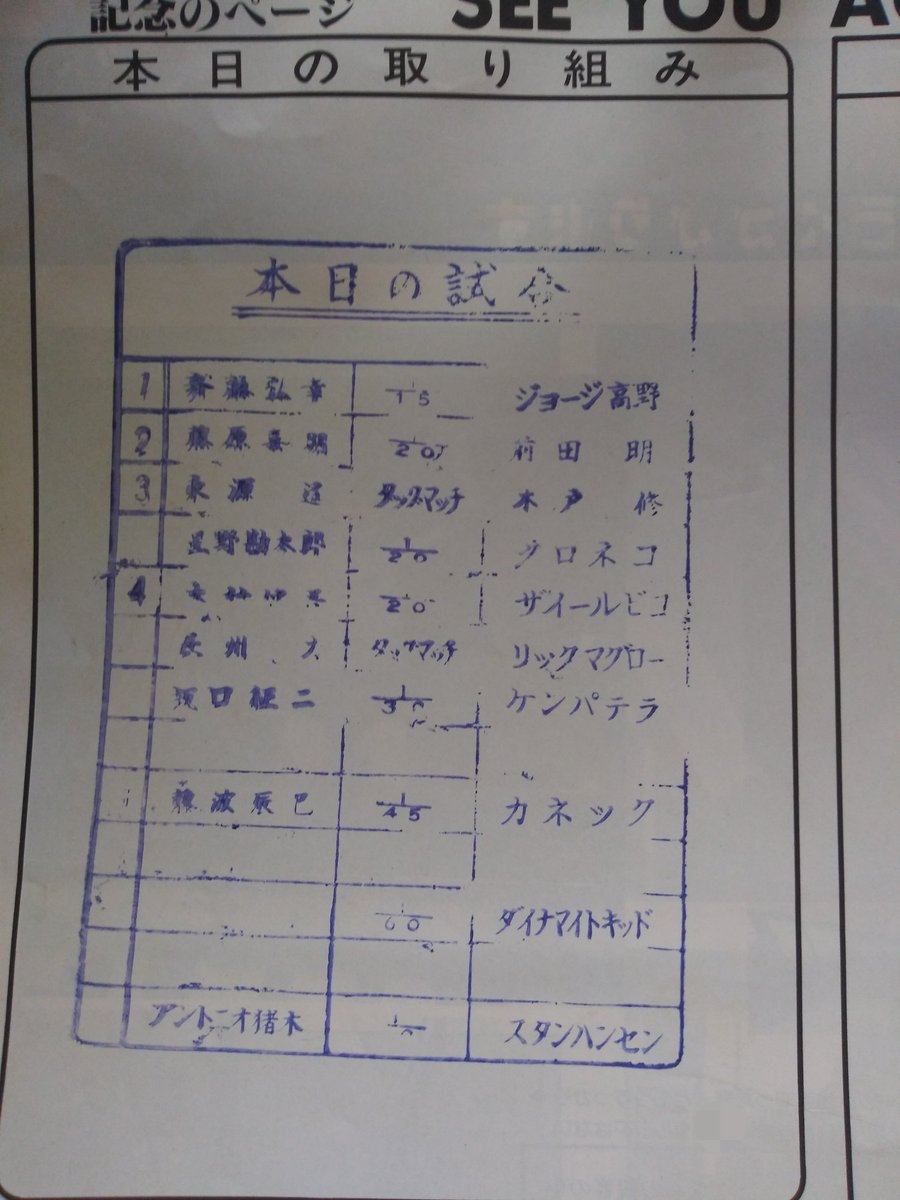 記念のページ SEE YOU
本日の取り組み
本日の試合
1 斉藤弘幸 1/15 ジョージ高野
2 藤原喜明 1/20 前田 明
3 永源 遙 タッグマッチ 木戸 修
星野勘太郎 1/20 クロネコ
4 1/20 ザイールビコ
長州 力 タッグマッチ リックマグロー
坂口征二 1/30 ケンパテラ
波辰巳 1/45 カネック
1/60 ダイナマイトキッド
アントニオ猪木 スタンハンセン